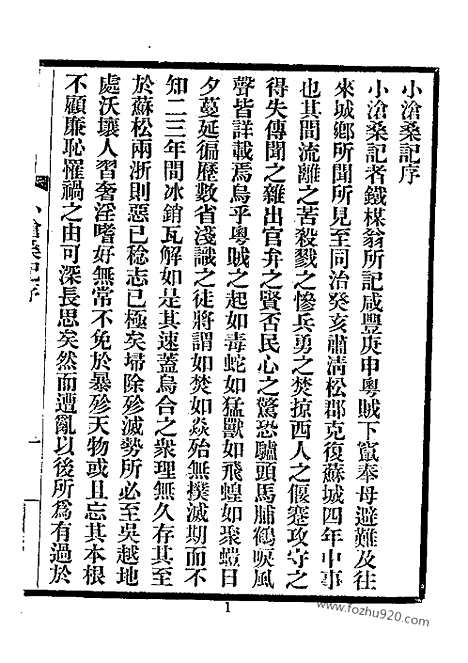 小滄桑記序
小滄桑記者鐵楳翁所記咸豐庚申粵賊下竄奉母避難及往
來城鄉所聞所見至同治癸亥肅清松郡克復蘇城四年中事
也其間流離之苦殺戮之慘兵勇之焚掠西人之偃蹇攻守之
得失傳聞之雜出官弁之賢否民心之驚恐驢頭馬脯鶴唳風
聲皆詳載焉烏乎粵賊之起如毒蛇如猛獸如飛蝗如聚螘日
夕蔓延徧歷數省淺識之徒將謂如焚如焱殆無撲滅期而不
知二三年間冰銷瓦解如是其速蓋烏合之衆理無久存其至
於蘇松兩浙則惡已稔志已極矣埽除殄滅勢所必至吳越地
處沃壤人習奢淫嗜好無常不免於暴殄天物或且忘其本根
不顧廉恥罹禍之由可深長思矣然而遭亂以後所爲有過於
小滄桑記序
一
1
www.fozhu920.com